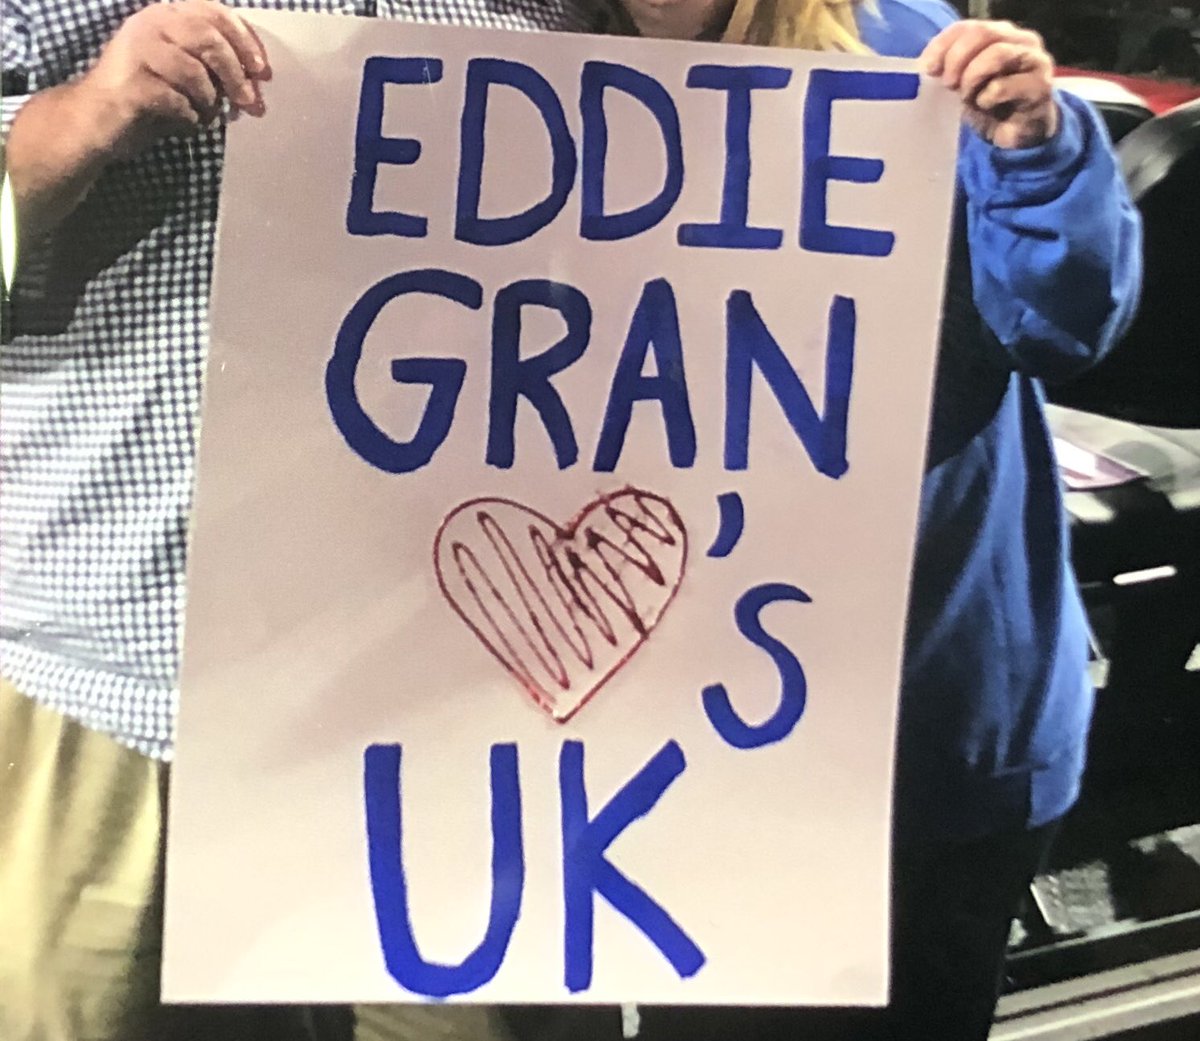 EDDIE
GRAN
'S
UK